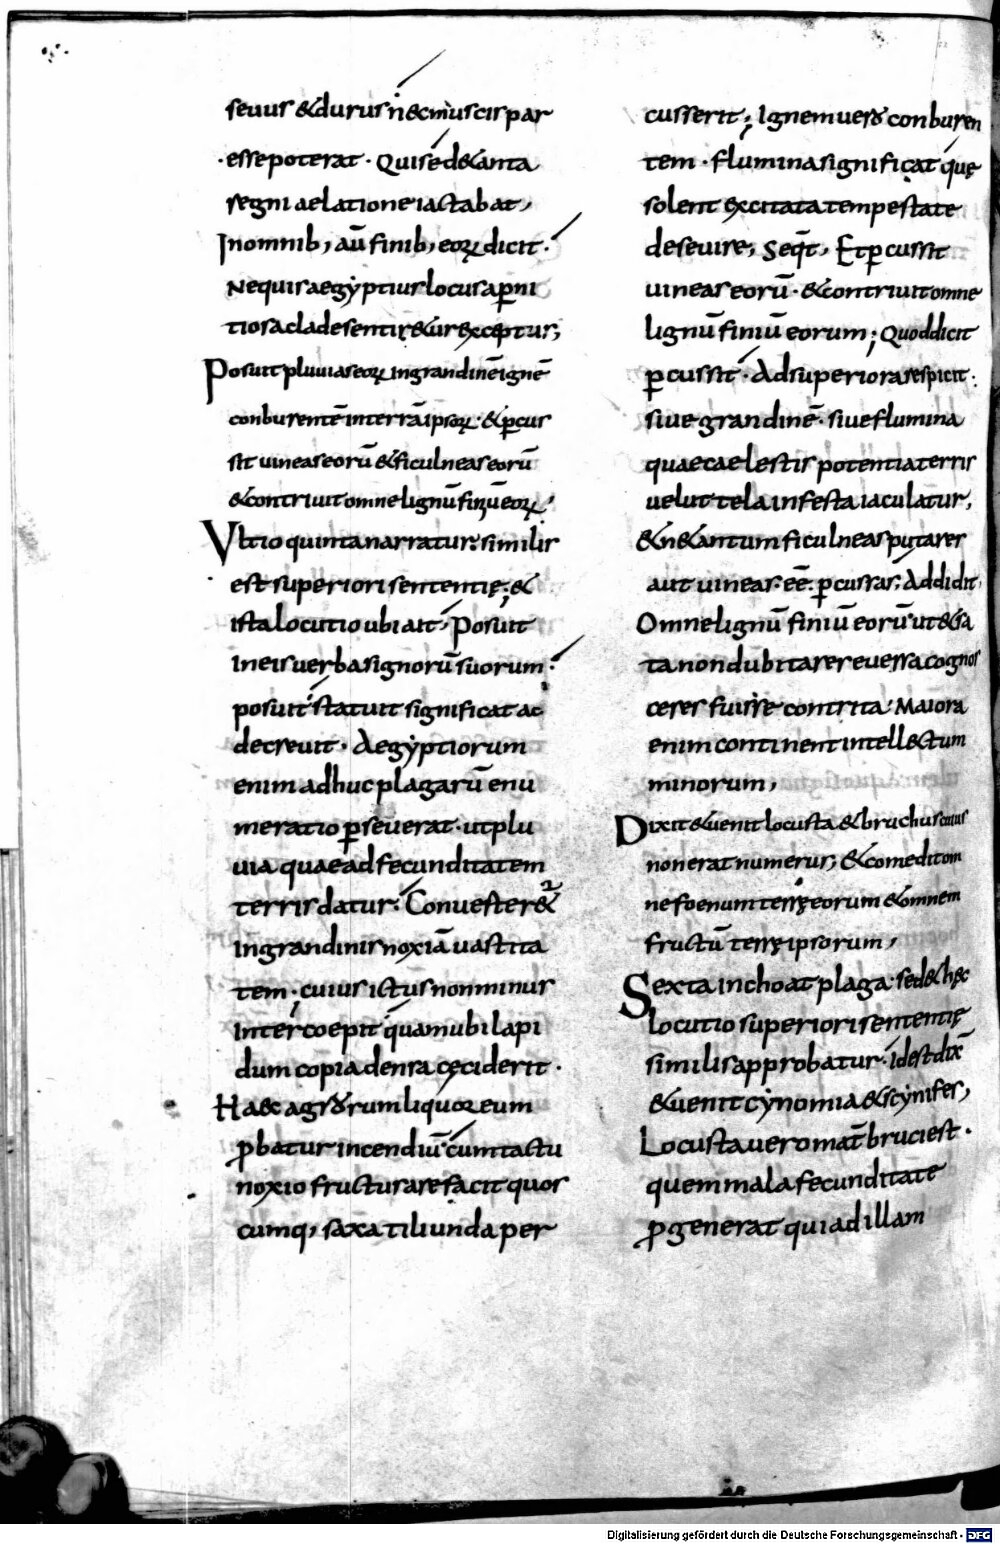 seuus & durus n̄ec muscis par
esse poterat · Qui se de tanta
segni aelatione iactabat,
In omnib; aū finib; eoꝝ dicit·
Nequis aegyptius locus a ꝑni
tiosa clade sentir&ur exceptus;
Posuit pluuias eoꝝ in grandinē ignē
conburentē in terrā ipsoꝝ · & ꝑcus
sit uineas eorū & ficulneas eorū
& contriuit omne lignū finiū eoꝝ;
Vltio quinta narratur: similis
est superiori sententię; &
ista locutio ubi ait; Posuit
in eis uerba signorū suorum:
posuit statuit significat ac
decreuit · Aegyptiorum
enim adhuc plagarū enu
meratio ꝑseuerat · ut plu
uia quae ad fecunditatem
terris datur: Conuester&ur
in grandinis noxiā uastita
tem · cuius ictus non minus
inter coepit quam ubi lapi
dum copia densa cęciderit ·
Haec agrorum liquore cum
ꝓbatur incendiū: cum tactu
noxio fructus arefacit quos
cumq; saxatili unda per
cusserit; Ignem uero conburen
tem · flumina significat quę
solent excitata tempestate
deseuire; Seqt̄, Et ꝑcussit
uineas eorū · & contriuit omne
lignū finiū eorum; Quod dicit
ꝑcussit · Ad superiora respicit:
siue grandinē · siue flumina
quae caelestis potentia terris
uelut tela infesta iaculatur,
& ne tantum ficulneas putares
aut uineas · eē· ꝑcussas; Addidit,
Omne lignū finiū eorū ut & sa
ta non dubitares euersa cognos
ceres fuisse contrita: Maiora
enim continent intellectum
minorum,
Dixit & uenit locusta & bruchus cuius
non erat numerus; & comedit om
ne foenum terrę eorum & omnem
fructū terrę ipsorum,
Sexta inchoat plaga: sed & hęc
locutio superiori sententię
similis approbatur · id est dix̄
& uenit cynomia & scynifes,
Locusta uero mat̄ bruci est ·
quem mala fecunditate
ꝓgenerat qui ad illam